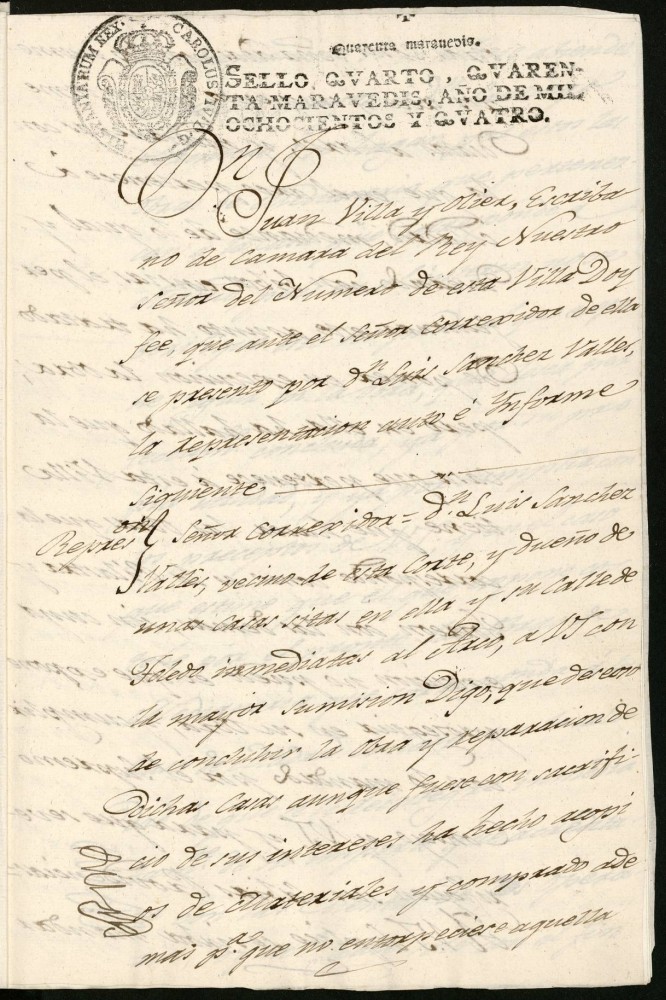 HISPANIARUM REX. CAROLUS IV D. G.
Quarenta maravedis.
SELLO QVARTO, QVAREN-
TA MARAVEDIS, AÑO DE MIL
OCHOCIENTOS Y QVATRO.
Dn Juan Villa y Olier, Escriba
no de Camara del Rey Nuestro
Señor del Numero de esta Villa Doy
fee, que ante el Señor Corregidor de ella
se presento por dn. Luis Sanchez Valles,
la representacion auto é Informe
siguiente
Repres.on Señor Corregidor = dn. Luis Sanchez
Valles, vecino de esta Corte, y dueño de
unas casas sitas en ella y su Calle de
Toledo inmediatas al Arco, a VS con
la mayor sumision Digo, que deseoso
de concluir la obra y reparacion de
dichas Casas aunque fuese con sacrifi-
cio de sus intereses ha hecho acopi
os de Materiales y comprado ade
mas pa. que no entorpeciese aquella